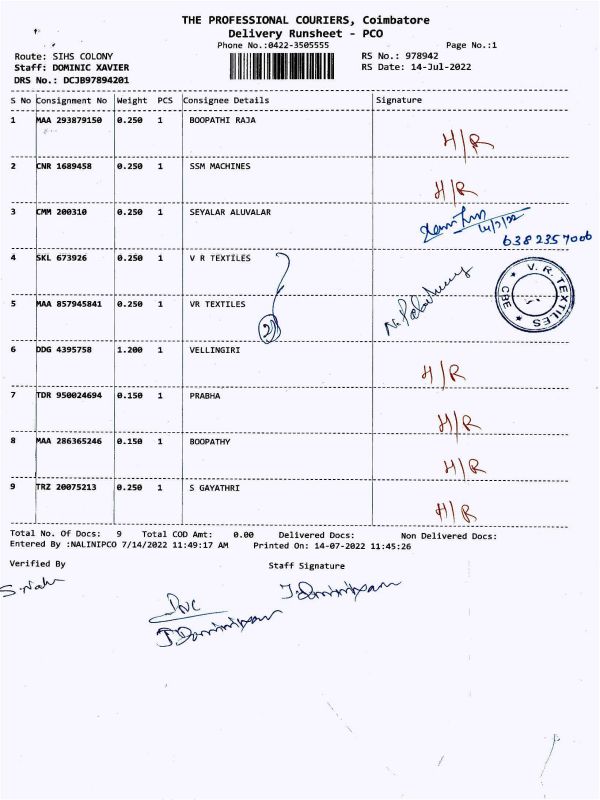 THE PROFESSIONAL COURIERS, Coimbatore
Delivery Runsheet - PCO
Phone No.:0422-3505555 Page No.:1
Route: SIHS COLONY RS No.: 978942
Staff: DOMINIC XAVIER RS Date: 14-Jul-2022
DRS No.: DCJB97894201
S No Consignment No Weight PCS Consignee Details Signature
1 MAA 293879150 0.250 1 BOOPATHI RAJA H/R
2 CNR 1689458 0.250 1 SSM MACHINES H/R
3 CMM 200310 0.250 1 SEYALAR ALUVALAR 14/7/22
6382357006
4 SKL 673926 0.250 1 V R TEXTILES
V. R. TEXTILES CBE
5 MAA 857945841 0.250 1 VR TEXTILES
6 DDG 4395758 1.200 1 VELLINGIRI H/R
7 TDR 950024694 0.150 1 PRABHA H/R
8 MAA 286365246 0.150 1 BOOPATHY H/R
9 TRZ 20075213 0.250 1 S GAYATHRI H/R
Total No. Of Docs: 9 Total COD Amt: 0.00 Delivered Docs: Non Delivered Docs:
Entered By :NALINIPCO 7/14/2022 11:49:17 AM Printed On: 14-07-2022 11:45:26
Verified By Staff Signature